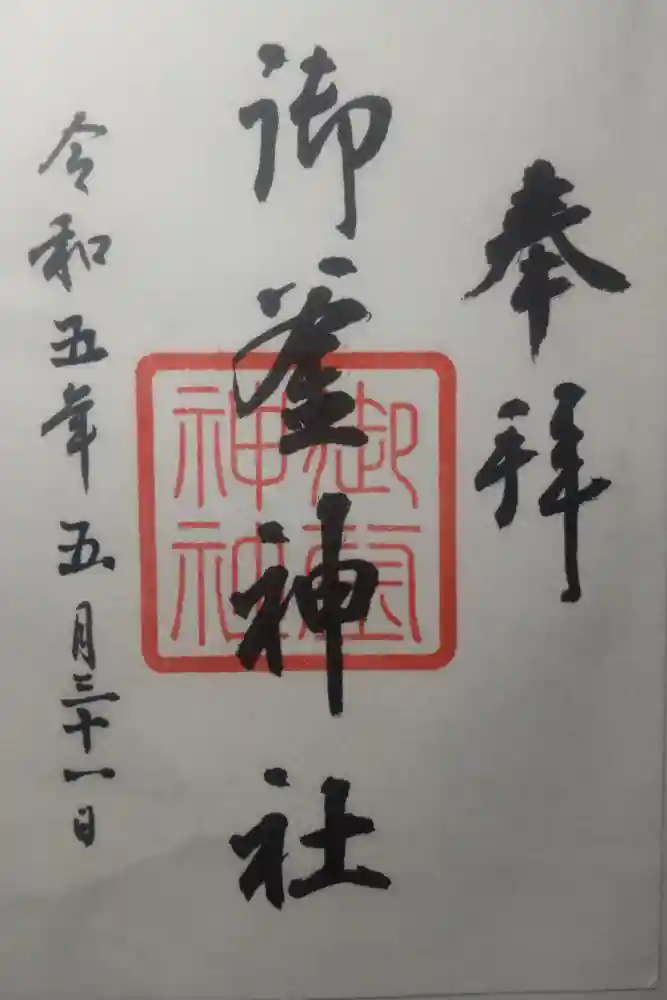 奉拝
御釜神社
御釜
神社
令和五年五月三十一日